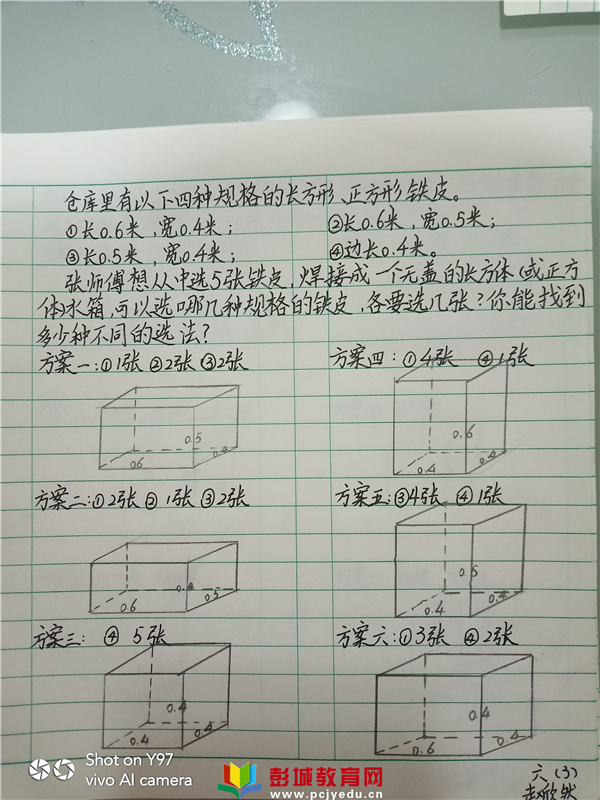 仓库里有以下四种规格的长方形、正方形铁皮。
①长0.6米,宽0.4米; ②长0.6米,宽0.5米;
③长0.5米,宽0.4米; ④边长0.4米。
张师傅想从中选5张铁皮,焊接成一个无盖的长方体(或正方
体)水箱,可以选哪几种规格的铁皮,各要选几张?你能找到
多少种不同的选法?
方案一:①1张 ②2张 ③2张
0.5
0.6
0.4
方案四:①4张 ④1张
0.6
0.4
0.4
方案二:①2张 ② 1张 ③2张
0.4
0.6
0.5
方案五:③4张 ④1张
0.5
0.4
0.4
方案三: ④ 5张
0.4
0.4
0.4
方案六:①3张 ④2张
0.4
0.6
0.4
六(3)
Shot on Y97
vivo AI camera
彭城教育网
www.pcjyedu.cn